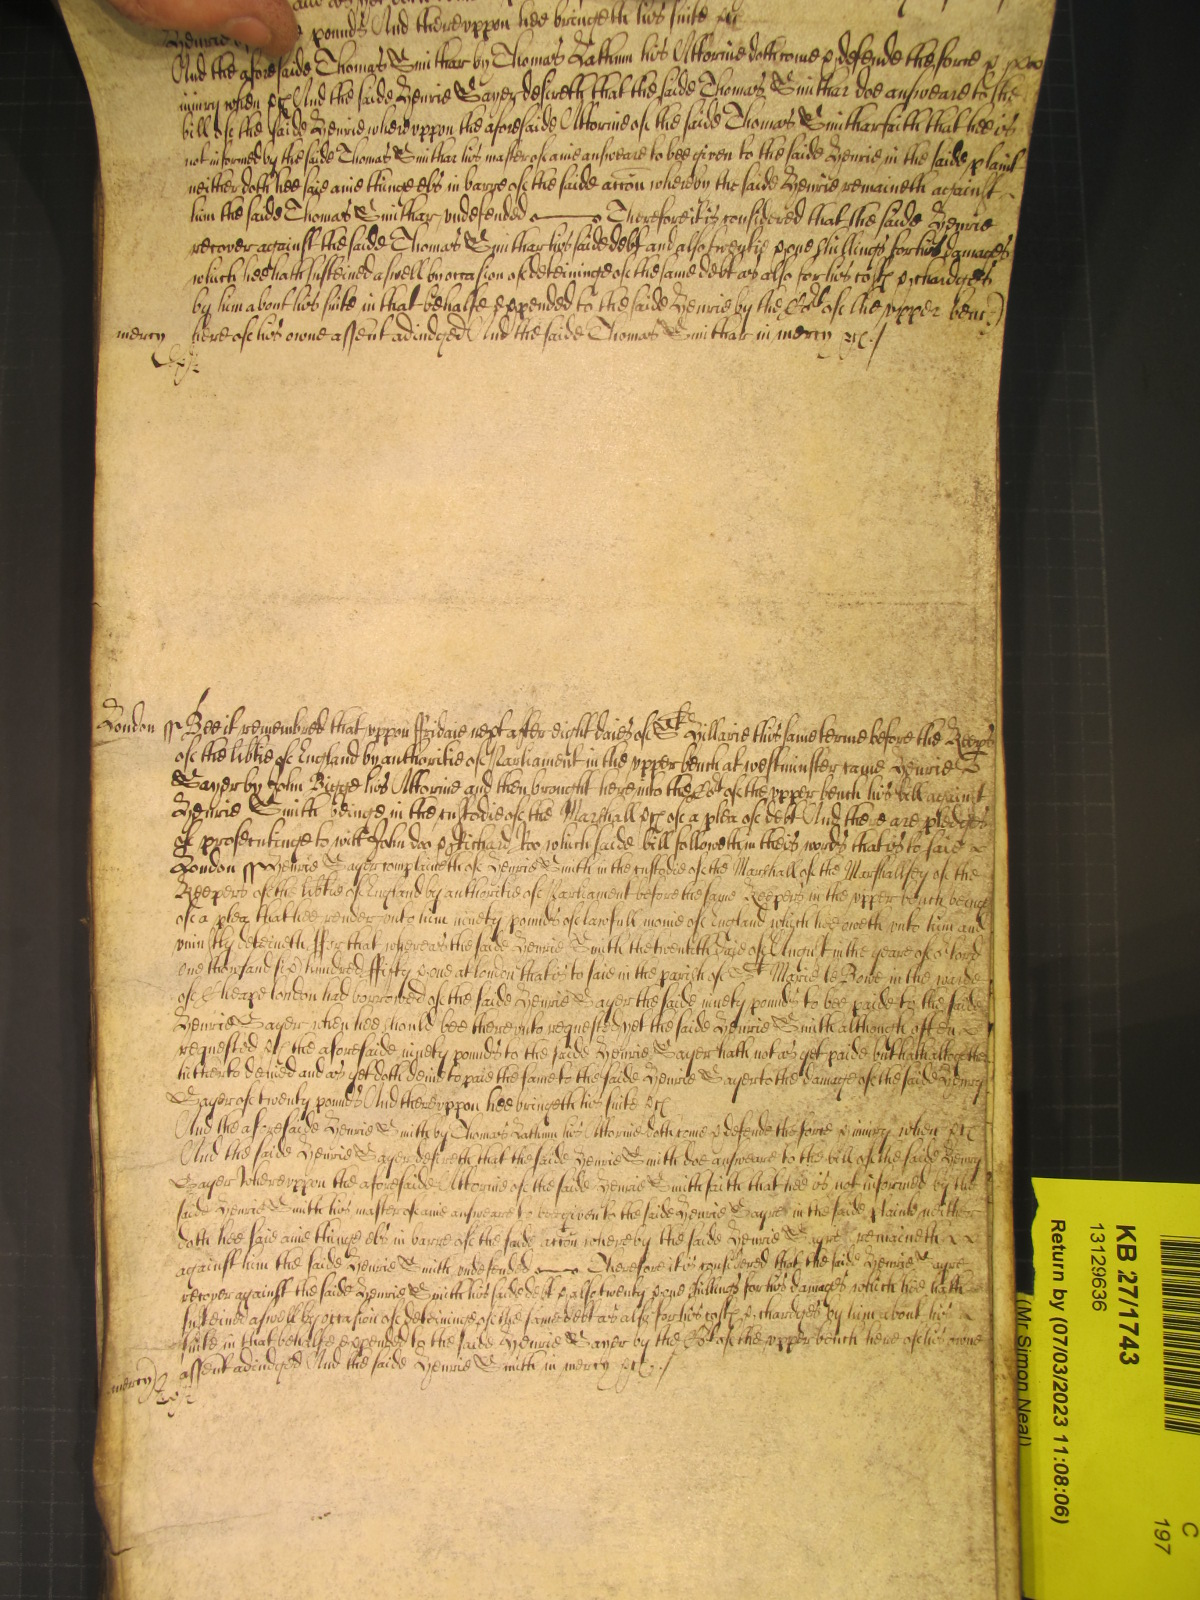 pounds And thereuppon hee bringeth his suite &c
And the aforesaide Thomas Smithar by Thomas Lathum his Attornie doth come & defende the force &
iniury when &c And the saide Henrie Sayer desireth that the saide Thomas Smithar doe answeare to the
bill of the saide Henrie whereuppon the aforesaide Attornie of the saide Thomas Smithar saith that hee is
not informed by the saide Thomas Smithar his master of anie answeare to bee given to the saide Henrie in the saide plaint
neither doth hee saie anie thinge els in barre of the saide accon whereby the saide Henrie remaineth against
him the saide Thomas Smithar undefended Therefore it is considered that the saide Henrie
recover against the saide Thomas Smithar his saide debt and also twentie & one shillings for his damages
which hee hath susteined aswell by occasion of deteininge of the same debt as also for his costs & chardges
by him about his suite in that behalfe expended to the saide Henrie by the Cort of the upper bench
mercy here of his owne assent adiudged And the saide Thomas Smithar in mercy &c
London ss Bee it remembred that uppon Fridaie next after eight daies of St Hillarie this same terme before the Keepers
of the libtie of England by authoritie of Parliament in the upper bench at westminster came Henrie
Sayer by John Bigge his Attornie and then brought here into the Cort of the upper bench his bill against
Henrie Smith beinge in the custodie of the Marshall &c of a plea of debt And there are pledges
of prosecutinge to witt John doo & Richard roo which saide bill followeth in theis words that is to saie
London ss Henrie Sayer complaineth of Henrie Smith in the custodie of the Marshall of the Marshallsey of the
Keepers of the libtie of England by authoritie of Parliament before the same Keepers in the upper bench beinge
of a plea that hee render unto him ninety pounds of lawfull monie of England which hee oweth unto him and
uniustly deteineth ffor that whereas the saide Henrie Smith the twentith daie of August in the yeare of or lord
one thousand six hundred ffifty & one at london that is to saie in the parish of St Marie le Bowe in the warde
of Cheape london had borrowed of the saide Henrie Sayer the saide ninety pounds to bee paide to the saide
Henrie Sayer when hee should bee thereunto requested yet the saide Henrie Smith although often
requested &c the aforesaide ninety pounds to the saide Henrie Sayer hath not as yet paide but hath altogether
hitherto denied and as yet doth denie to paie the same to the saide Henrie Sayer to the damage of the saide Henry
Sayer of twenty pounds And thereuppon hee bringeth his suite &c
And the aforesaide Henrie Smith by Thomas Lathum his Attornie doth come & defende the force & iniury when &c
And the saide Henrie Sayer desireth that the saide Henrie Smith doe answeare to the bill of the saide Henry
Sayer whereuppon the aforesaide Attornie of the saide Henrie Smith saith that hee is not informed by the
said Henrie Smith his master of anie answeare to bee given to the saide Henrie Sayre in the saide plainte neither
doth hee saie anie thinge els in barre of the saide accon whereby the saide Henrie Sayre remaineth
against him the saide Henrie Smith undefended Therefore it is considered that the saide Henrie Sayre
recover against the saide Henrie Smith his saide debt & also twenty & one shillings for his damages which hee hath
susteined aswell by occasion of deteininge of the same debt as also for his costs & chardges by him about his
suite in that behalfe expended to the saide Henrie Sayer by the Cort of the upper bench here of his owne
assent adiudged And the saide Henrie Smith in mercy &c
mercy
KB 27/1743
13129636
Return by (07/03/2023 11:08:06)
(Mr Simon Neal)
C
197